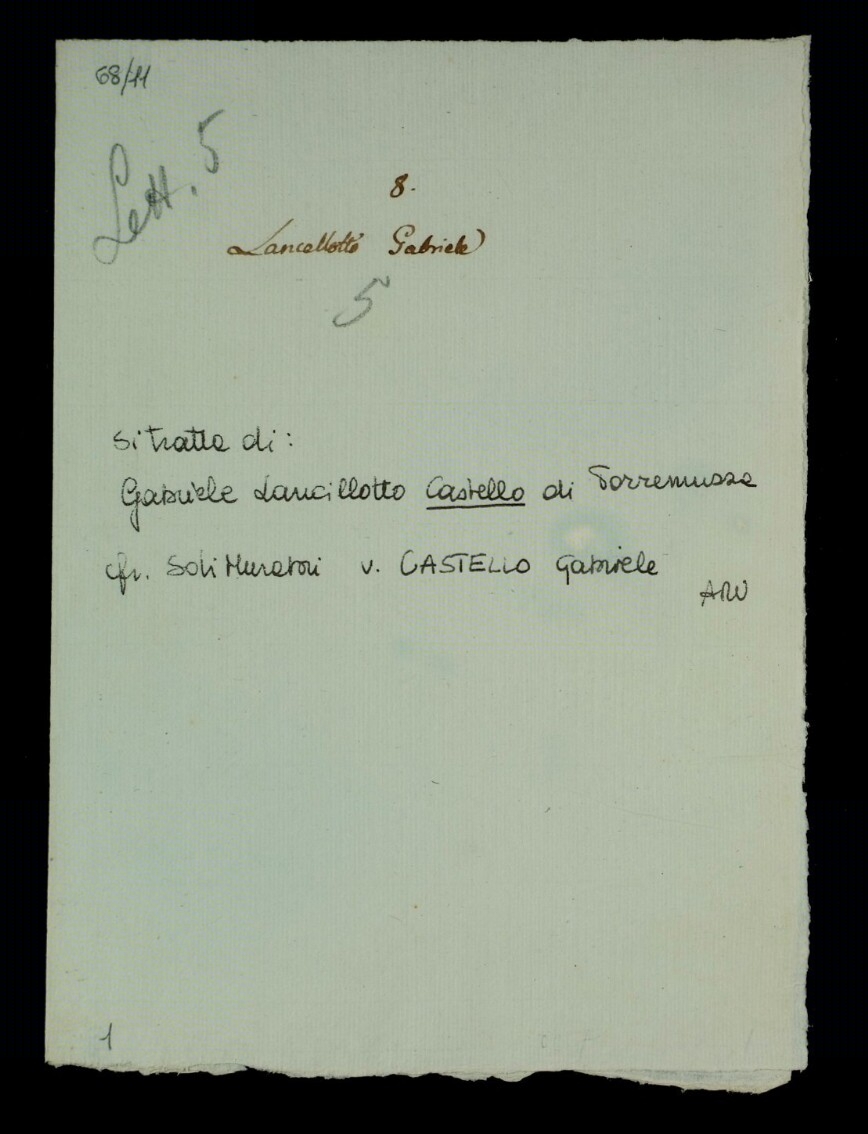 68/11
Lett. 5
8.
Lancellotto Gabriele
5
Si tratta di:
Gabriele Lancillotto Castello di Torremuzza
cfr. Soli Muratori v. CASTELLO Gabriele
1